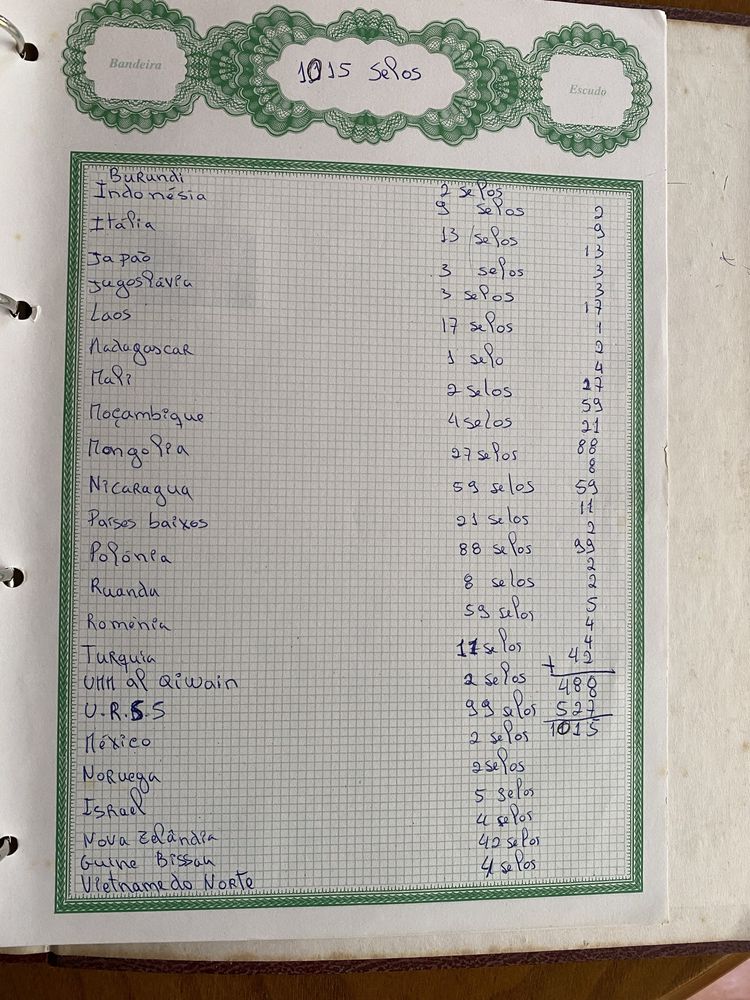 Bandeira
1015 selos
Escudo
Burundi 2 selos
Indonésia 9 selos 2
Itália 13 selos 9
Japão 3 selos 13
Jugoslávia 3 selos 3
Laos 17 selos 3
Madagascar 1 selo 17
Mali 2 selos 1
Moçambique 4 selos 2
Mongolia 27 selos 4
Nicaragua 59 selos 27
Países baixos 21 selos 59
Polónia 88 selos 21
Ruanda 8 selos 88
Roménia 59 selos 8
Turquia 11 selos 59
UMM al Qiwain 2 selos 11
U.R.S.S 99 selos 2
México 2 selos 99
Noruega 2 selos 2
Israel 5 selos 2
Nova Zelândia 4 selos 5
Guine Bissau 42 selos 4
Vietname do Norte 4 selos 4
+ 42
488
527
1015